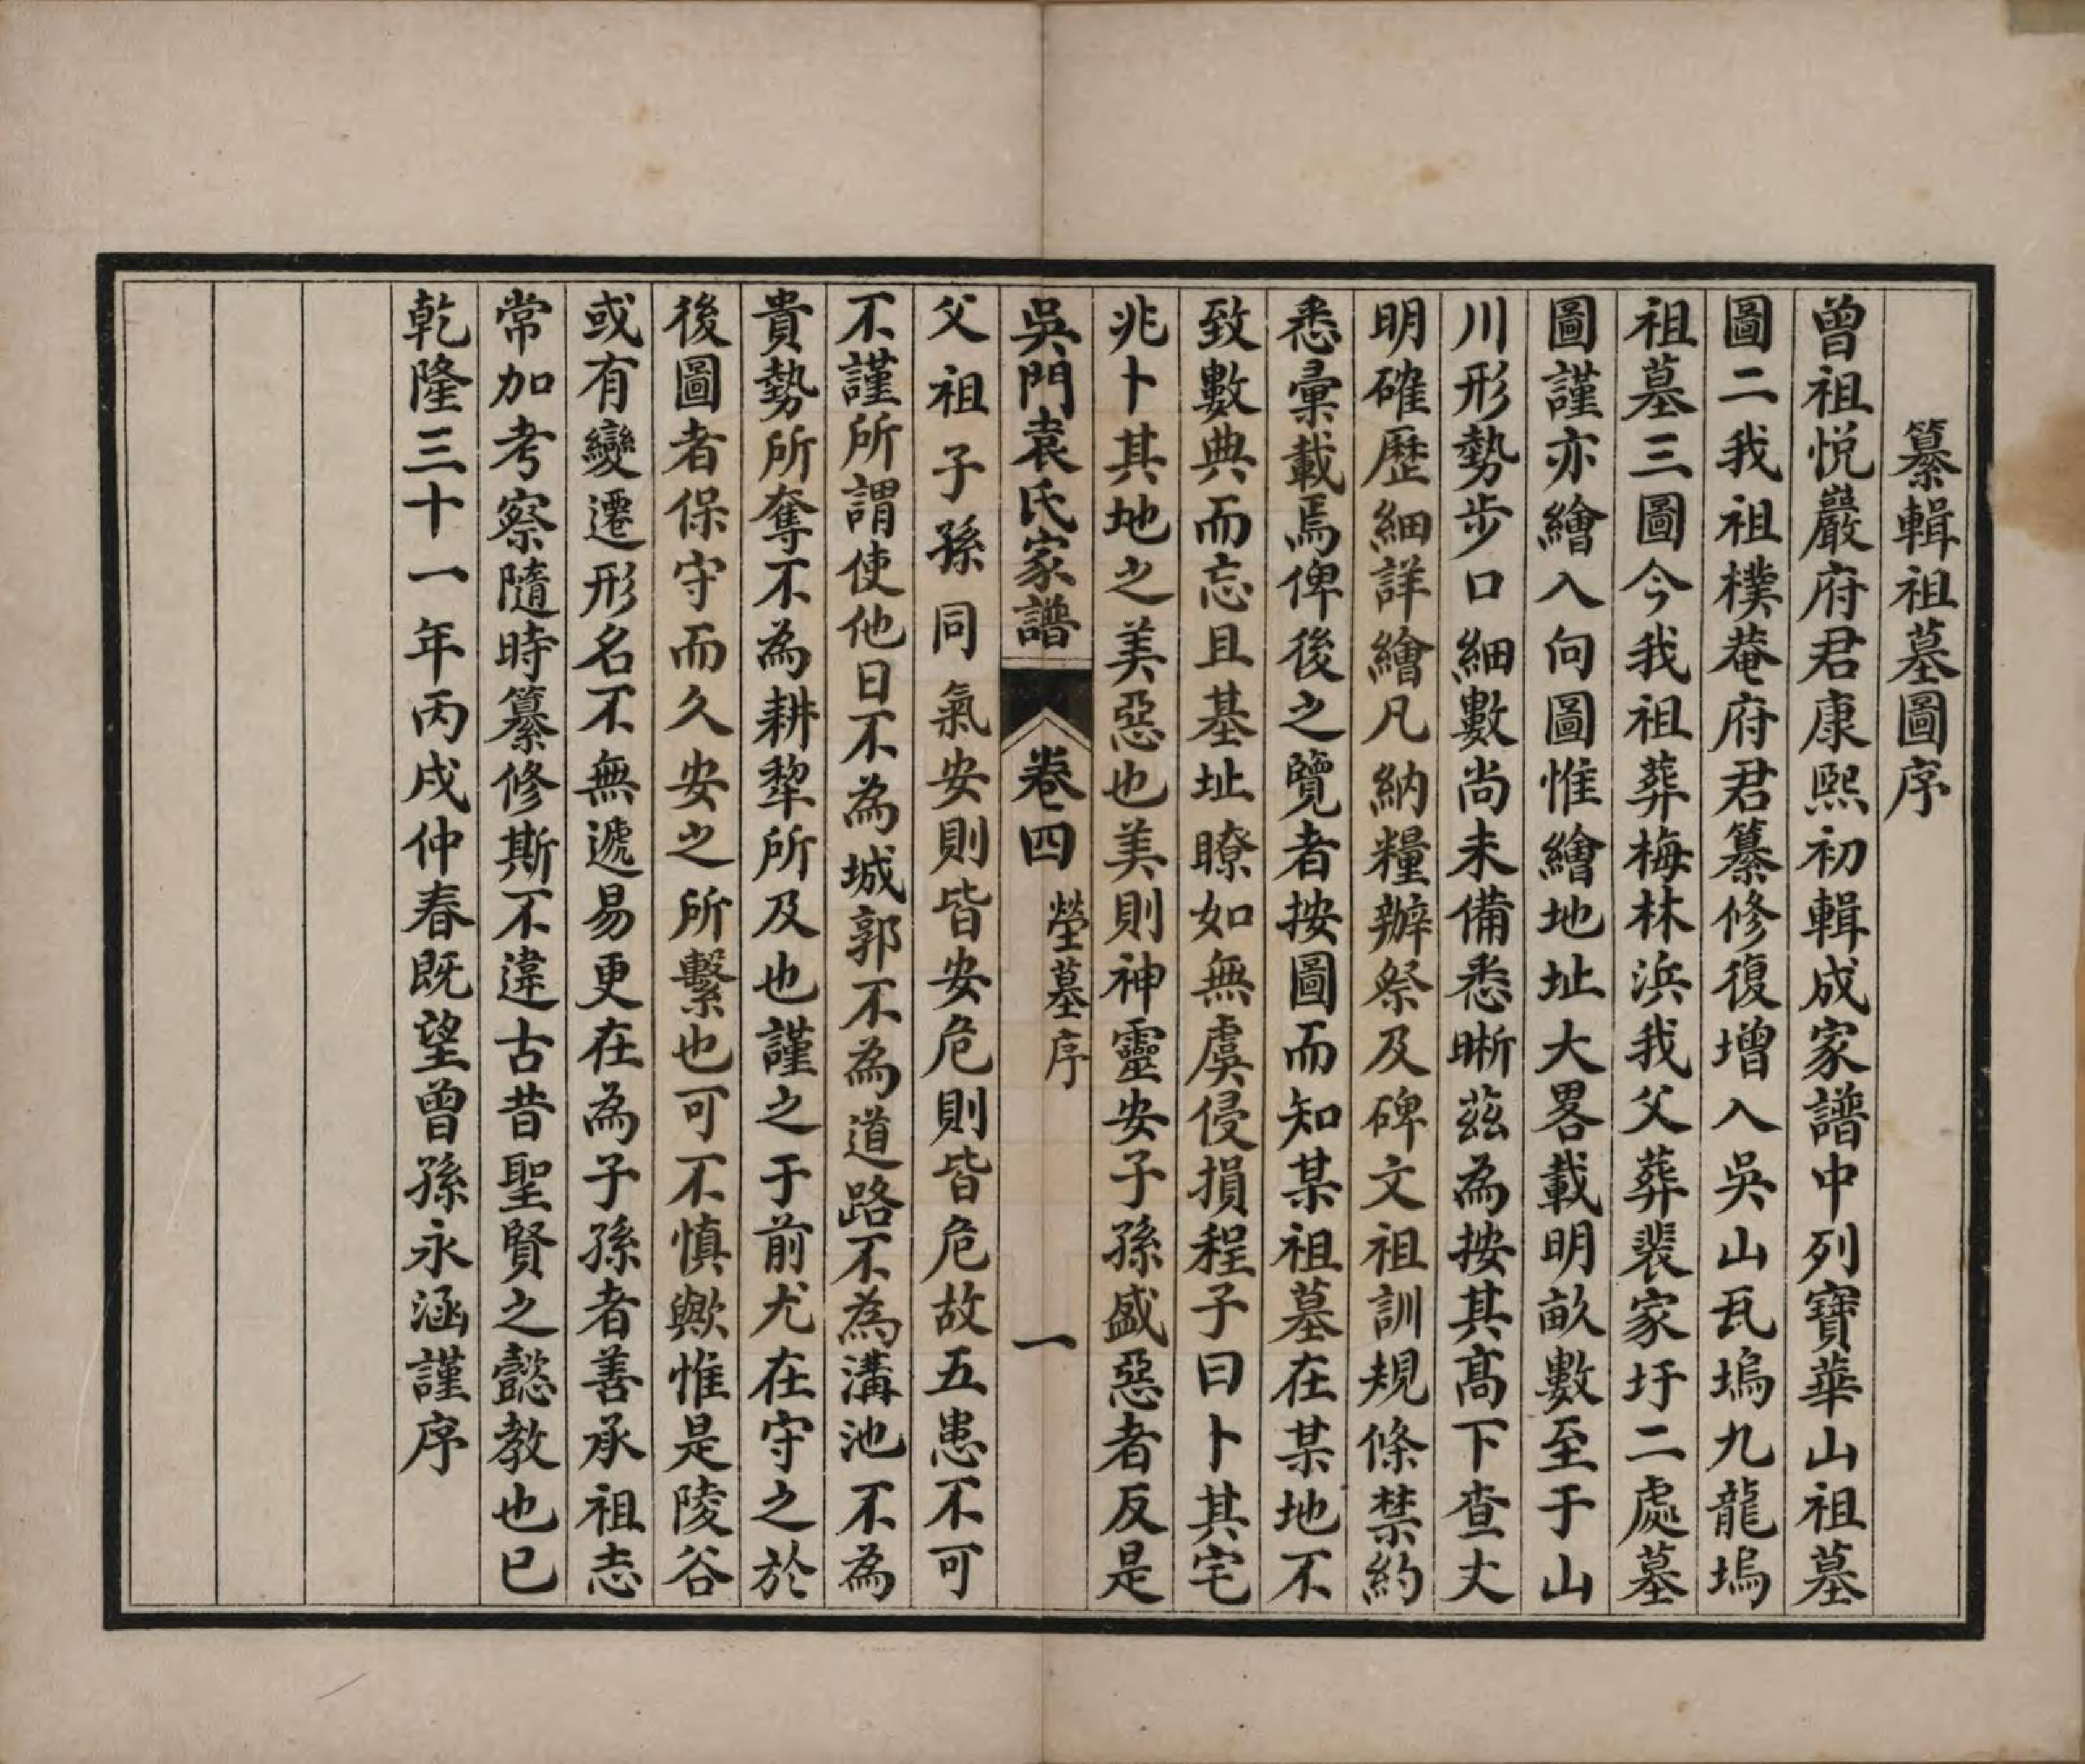 纂輯祖墓圖序
曾祖悅巖府君康熙初輯成家譜中列寶華山祖墓
圖二我祖樸菴府君纂修復增入吳山瓦塢九龍塢
祖墓三圖今我祖葬梅林浜我父葬裴家圩二處墓
圖謹亦繪入向圖惟繪地址大畧載明畝數至于山
川形勢步口細數尚未備悉晰茲為按其高下查丈
明確歷細詳繪凡納糧辦祭及碑文祖訓規條禁約
悉彙載焉俾後之覽者按圖而知某祖墓在某地不
致數典而忘且基址瞭如無虞侵損程子曰卜其宅
兆卜其地之美惡也美則神靈安子孫盛惡者反是
吳門袁氏家譜 卷四 塋墓序 一
父祖子孫同氣安則皆安危則皆危故五患不可
不謹所謂使他日不為城郭不為道路不為溝池不為
貴勢所奪不為耕犂所及也謹之于前尤在守之於
後圖者保守而久安之所繫也可不慎歟惟是陵谷
或有變遷形名不無遞易更在為子孫者善承祖志
常加考察隨時纂修斯不違古昔聖賢之懿教也已
乾隆三十一年丙戌仲春既望曾孫永涵謹序